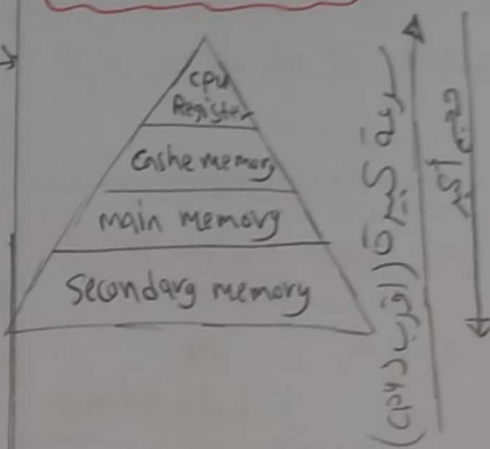 cpu
Register
Cashe memory
main memory
Secondary memory
(اقرب لـ cpu)
حجم أكبر